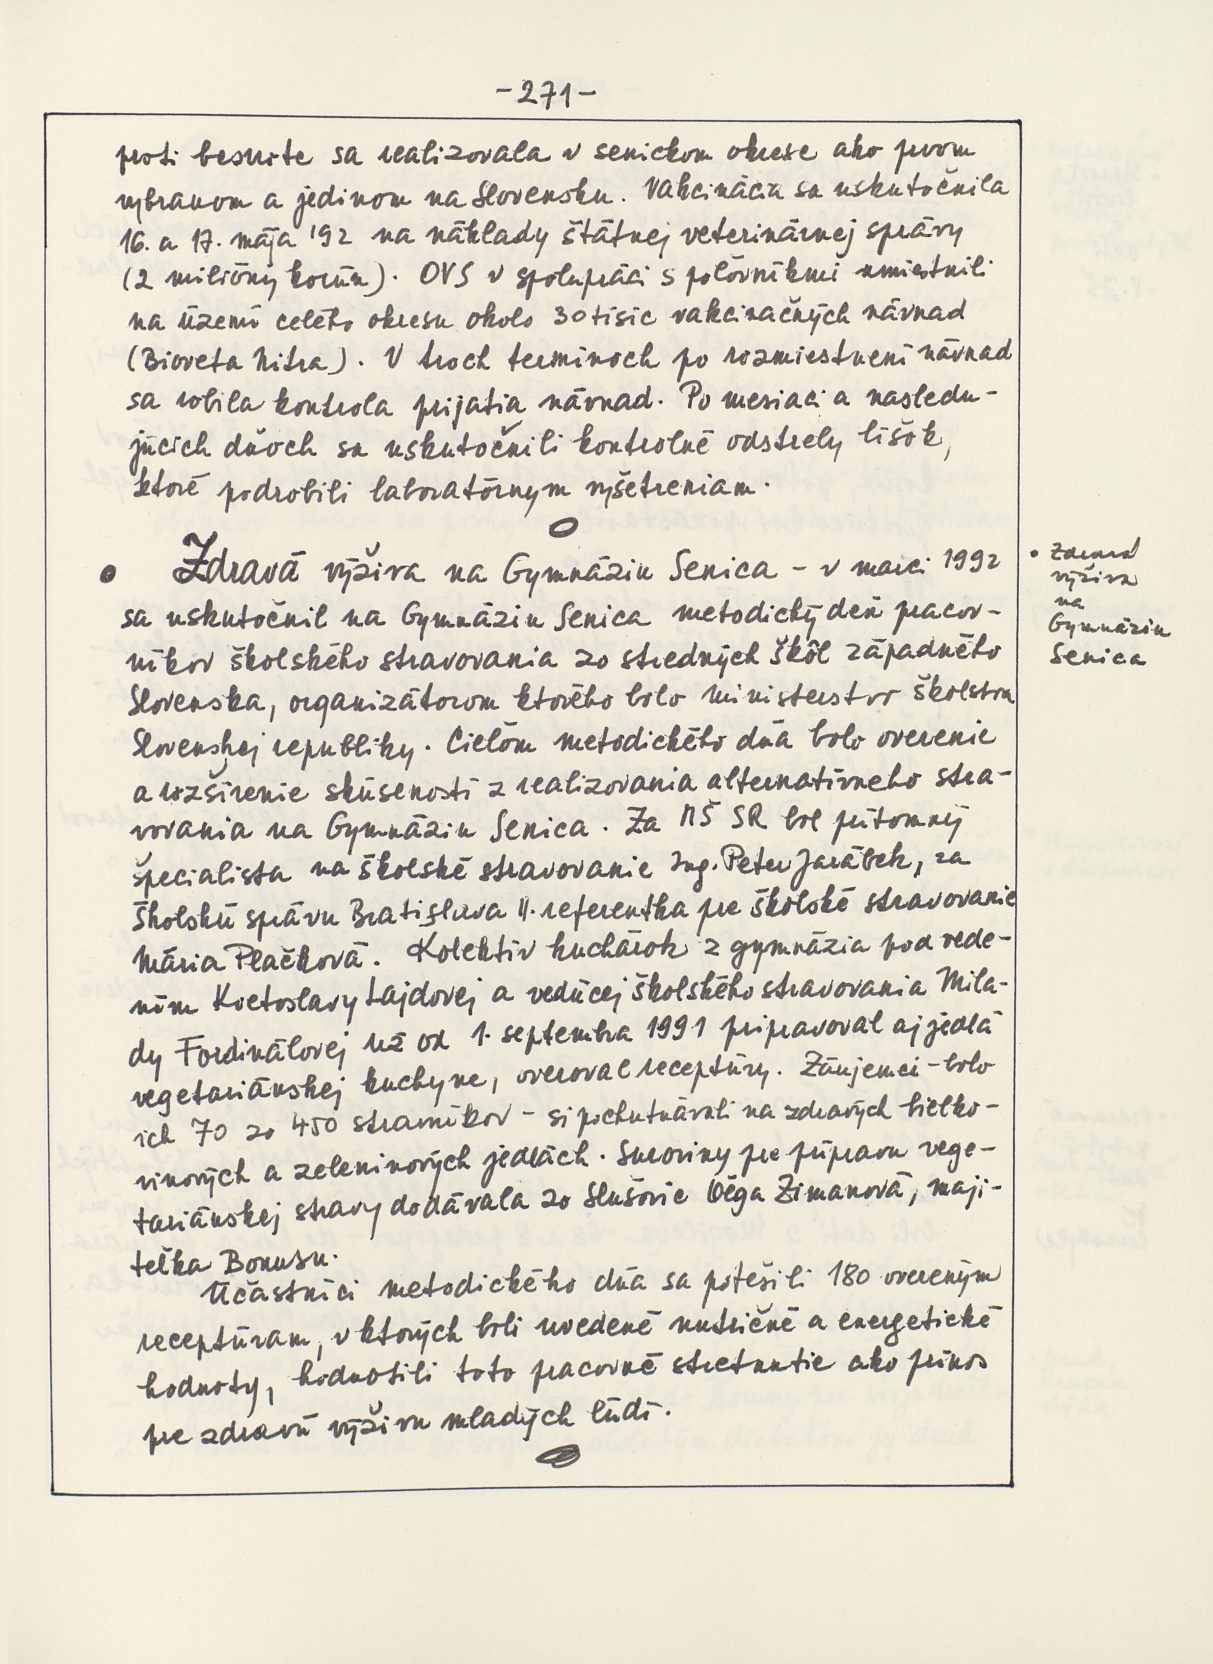 -271-
proti besnote sa realizovala v senickom okrese ako prvom
vybranom a jedinom na Slovensku. Vakcinácia sa uskutočnila
16. a 17. mája '92 na náklady štátnej veterinárnej správy
(2 milióny korún). OVS v spolupráci s poľovníkmi umiestnili
na území celého okresu okolo 30 tisíc vakcinačných návnad
(Bioveta Nitra). V troch termínoch po rozmiestnení návnad
sa robila kontrola prijatia návnad. Po mesiaci a nasledu-
júcich dňoch sa uskutočnili kontrolné odstrely líšok,
ktoré podrobili laboratórnym vyšetreniam.
• Zdravá výživa na Gymnáziu Senica - v marci 1992
• Zdravá
výživa
na
Gymnáziu
Senica
sa uskutočnil na Gymnáziu Senica metodický deň pracov-
níkov školského stravovania zo stredných škôl západného
Slovenska, organizátorom ktorého bolo Ministerstvo školstva
Slovenskej republiky. Cieľom metodického dňa bolo overenie
a rozšírenie skúseností z realizovania alternatívneho stra-
vovania na Gymnáziu Senica. Za MŠ SR bol prítomný
špecialista na školské stravovanie Ing. Peter Jarábek, za
Školskú správu Bratislava II. referentka pre školské stravovanie
Mária Plačková. Kolektív kuchárok z gymnázia pod vede-
ním Kvetoslavy Lajdovej a vedúcej školského stravovania Mila-
dy Fordinálovej už od 1. septembra 1991 pripravoval aj jedlá
vegetariánskej kuchyne, overoval receptúry. Záujemci - bolo
ich 70 zo 450 stravníkov - si pochutnávali na zdravých bielko-
vinových a zeleninových jedlách. Suroviny pre prípravu vege-
tariánskej stravy dodávala zo Slušovíc Oľga Zimanová, maji-
teľka Bonusu.
Účastníci metodického dňa sa potešili 180 overeným
receptúram, v ktorých boli uvedené nutričné a energetické
hodnoty, hodnotili toto pracovné stretnutie ako prínos
pre zdravú výživu mladých ľudí.